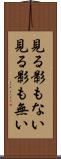 見る影もない
見る影も無い